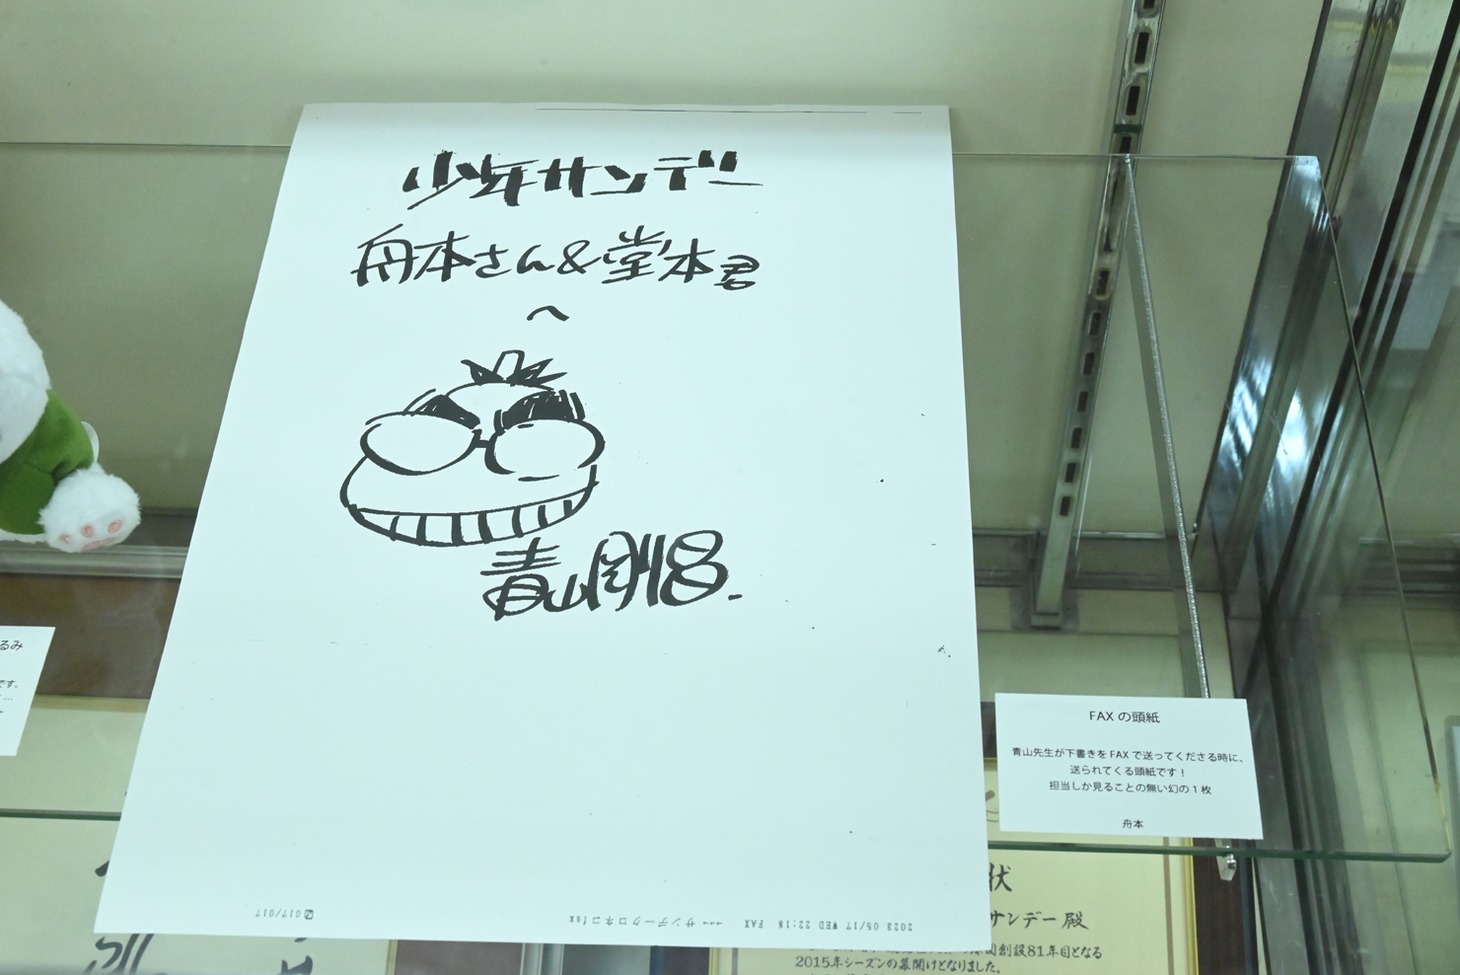 少年サンデー
舟本さん&堂本君
へ
青山剛昌.
2023 05/17 WED 22:18 FAX →→→ サンデークロネコfax 017/017
FAX の頭紙
青山先生が下書きを FAX で送ってくださる時に、
送られてくる頭紙です！
担当しか見ることの無い幻の 1 枚
舟本
るみ
です。
状
サンデー殿
創設81年目となる
2015年シーズンの幕開けとなりました。